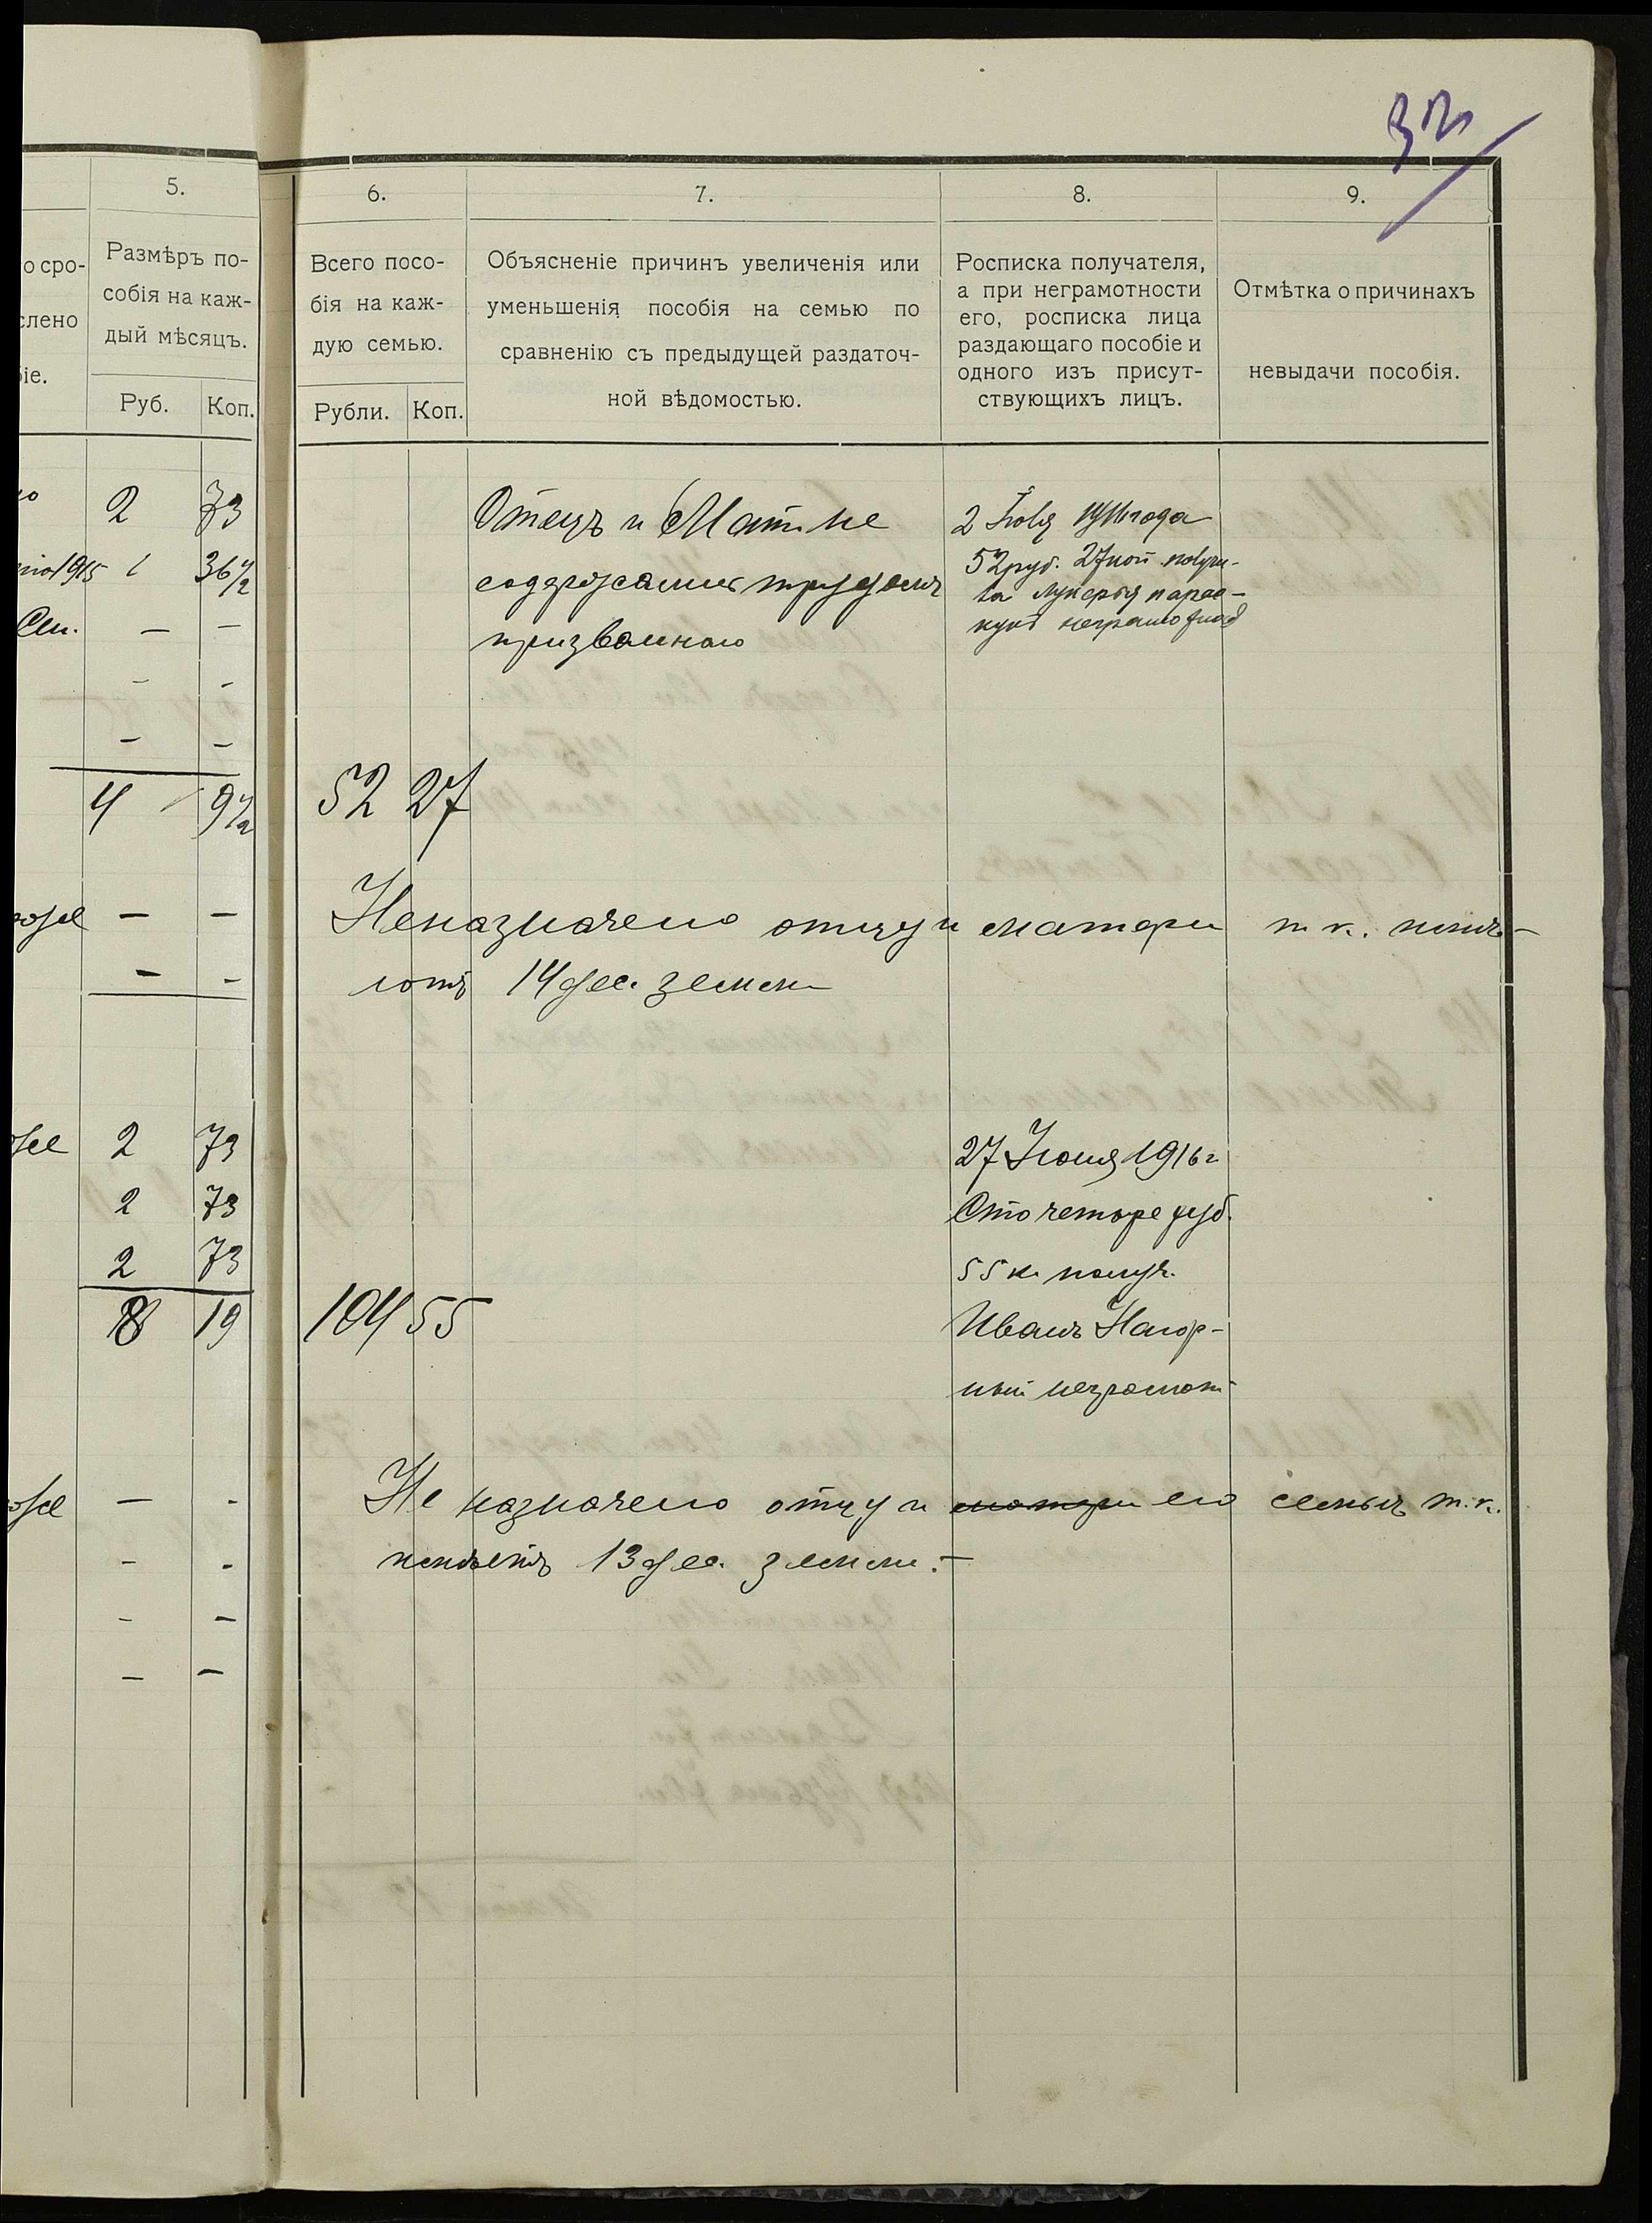 32
5.
о сро-
слено
іе.
Размѣръ по-
собія на каж-
дый мѣсяцъ.
Руб. Коп.
6.
Всего посо-
бія на каж-
дую семью.
Рубли. Коп.
7.
Объясненіе причинъ увеличенія или
уменьшенія пособія на семью по
сравненію съ предыдущей раздаточ-
ной вѣдомостью.
8.
Росписка получателя,
а при неграмотности
его, росписка лица
раздающаго пособіе и
одного изъ присут-
ствующихъ лицъ.
9.
Отмѣтка о причинахъ
невыдачи пособія.
2 73
1915 1 36 1/2
— —
- -
- -
4 9 1/2
Отецъ и Мать не
содержались трудомъ
призваннаго
2 Іюля 1916 года
52 руб. 27 коп. получи-
ла Лукерья
52 27
— —
— -
Неназначено отцу и матери т. к. имѣ-
ютъ 14 дес. земли
2 73
2 73
2 73
8 19
104 55
27 Іюня 1916 г
Сто четыре руб.
55 к. получ.
Иванъ Нагор-
ный неграмот
— -
- -
- —
— —
Не назначено отцу и матери его семьѣ т. к.
имѣетъ 13 дес. земли. —